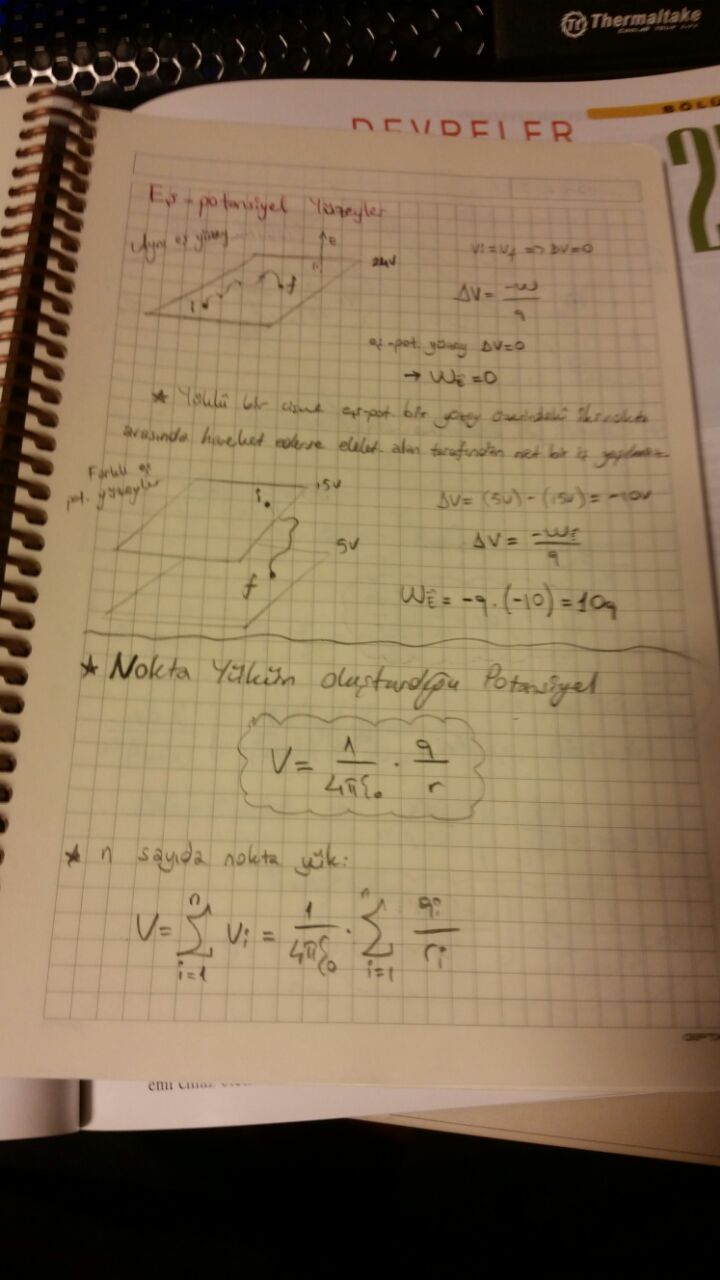 Thermaltake
DEVRELER
BÖLÜ
2
Eş-potansiyel Yüzeyler
Aynı eş yüzey
E
24V
i
f
Vi = Vf => ΔV=0
ΔV = -W/q
eş-pot. yüzey ΔV=0
→ WE = 0
★ Yüklü bir cisim eş-pot bir yüzey üzerindeki iki nokta
arasında hareket ederse elekt. alan tarafından net bir iş yapılmaz.
Farklı eş
pot. yüzeyler
15V
i
5V
f
ΔV = (5V) - (15V) = -10V
ΔV = -WE/q
WE = -q.(-10) = 10q
★ Nokta Yükün oluşturduğu Potansiyel
V = 1/4πε₀ . q/r
★ n sayıda nokta yük:
V = Σ(i=1, n) Vi = 1/4πε₀ . Σ(i=1, n) qi/ri